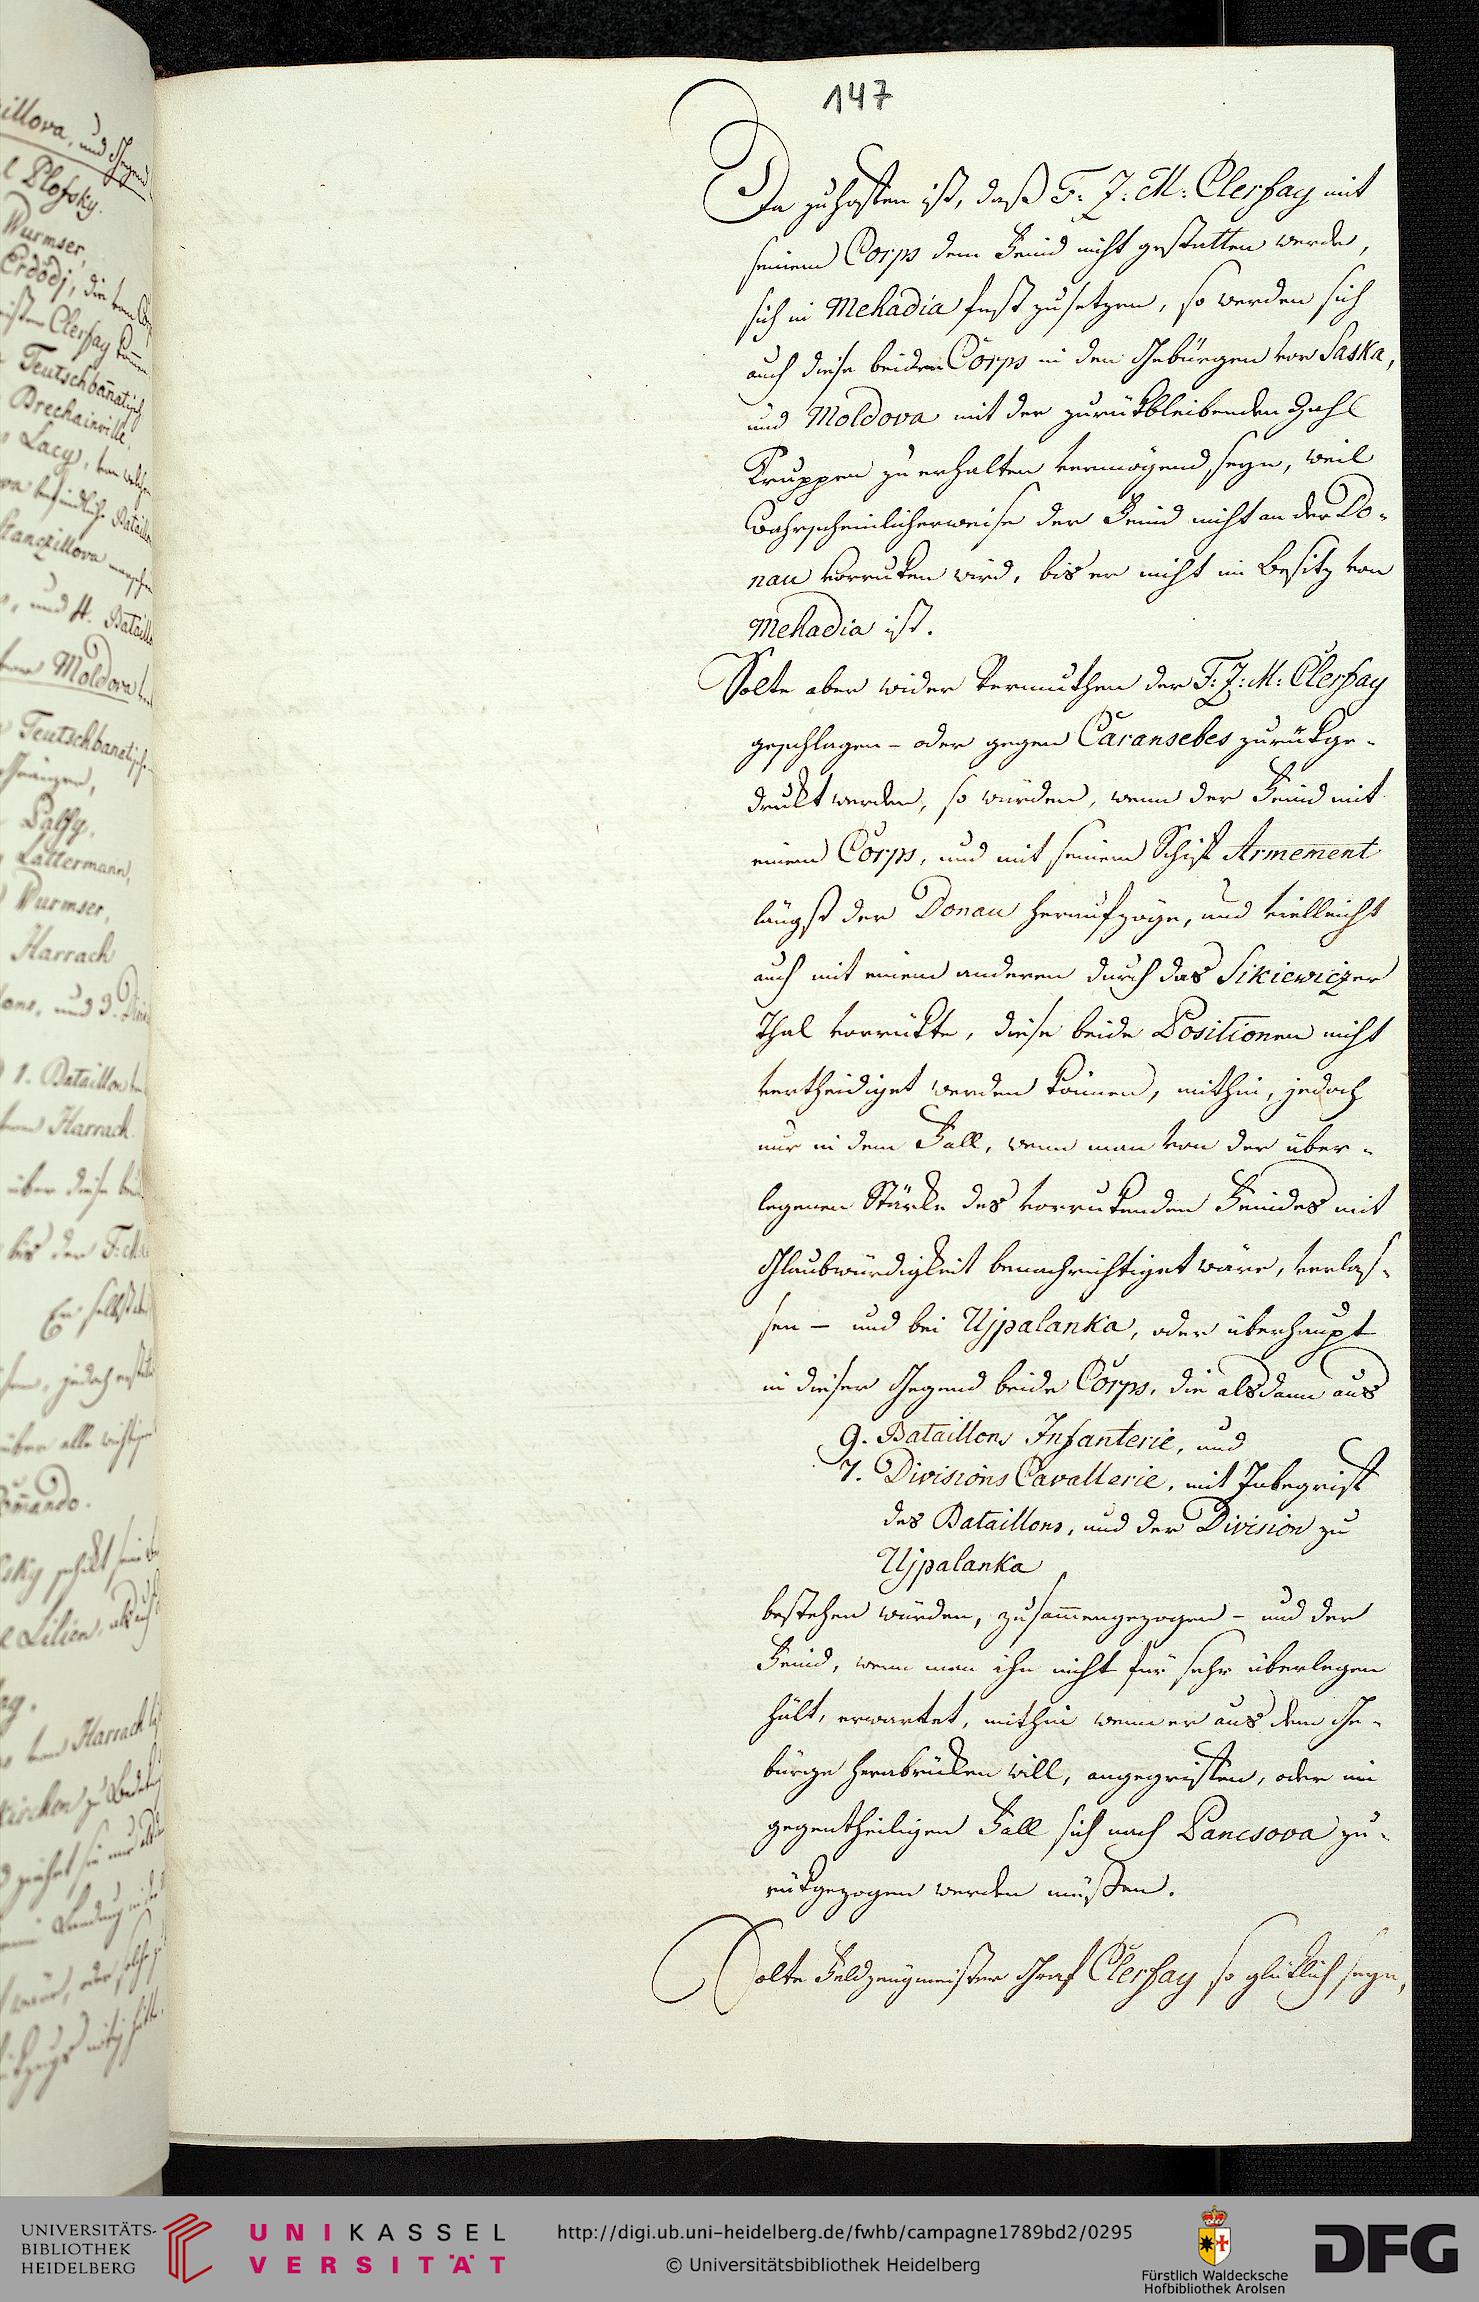 147
Da zuhoffen ist, daß F: Z: M: Clerfay mit
seinem Corps dem Feind nicht gestatten werde,
sich in Mehadia fest zusetzen, so werden sich
auch diese beiden Corps in den Gebürgen von Saska,
und Moldova mit der zurükbleibenden Zahl
Truppen zu erhalten vermögend seyn, weil
Wahrscheinlicherweise der Feind nicht an der Do-
nau vorruken wird, bis er nicht im Besitz von
Mehadia ist.
Solte aber wider Vermuthen der F: Z: M: Clerfay
geschlagen - oder gegen Caransebes zurükge-
drukt werden, so würden, wenn der Feind mit
einem Corps, und mit seinem Schif Armement
längst der Donau heraufzöge, und vielleicht
auch mit einem anderen durch das Sikiewiczer
Thal vorrükte, diese beide Positionen nicht
vertheidiget werden können, mithin, jedoch
nur in dem Fall, wenn man von der über-
legenen Stärke des vorrukenden Feindes mit
Glaubwürdigkeit benachrichtiget wäre, verlas-
sen - und bei Ujpalanka, oder überhaupt
in dieser Gegend beide Corps, die alsdann aus
9. Bataillons Infanterie, und
7. Divisions Cavallerie, mit Inbegrif
des Bataillons, und der Division zu
Ujpalanka
bestehen würden, zusammengezogen - und der
Feind, wenn man ihn nicht für sehr überlegen
hält, erwartet, mithin wenn er aus dem Ge-
bürge herabrüken will, angegriffen, oder im
gegentheiligen Fall sich nach Pancsova zu-
rükgezogen werden müßen.
Solte Feldzeugmeister Graf Clerfay so glüklich seyn,
UNIVERSITÄTS-
BIBLIOTHEK
HEIDELBERG
UNIKASSEL
VERSITÄT
http://digi.ub.uni-heidelberg.de/fwhb/campagne1789bd2/0295
© Universitätsbibliothek Heidelberg
Fürstlich Waldecksche
Hofbibliothek Arolsen
DFG